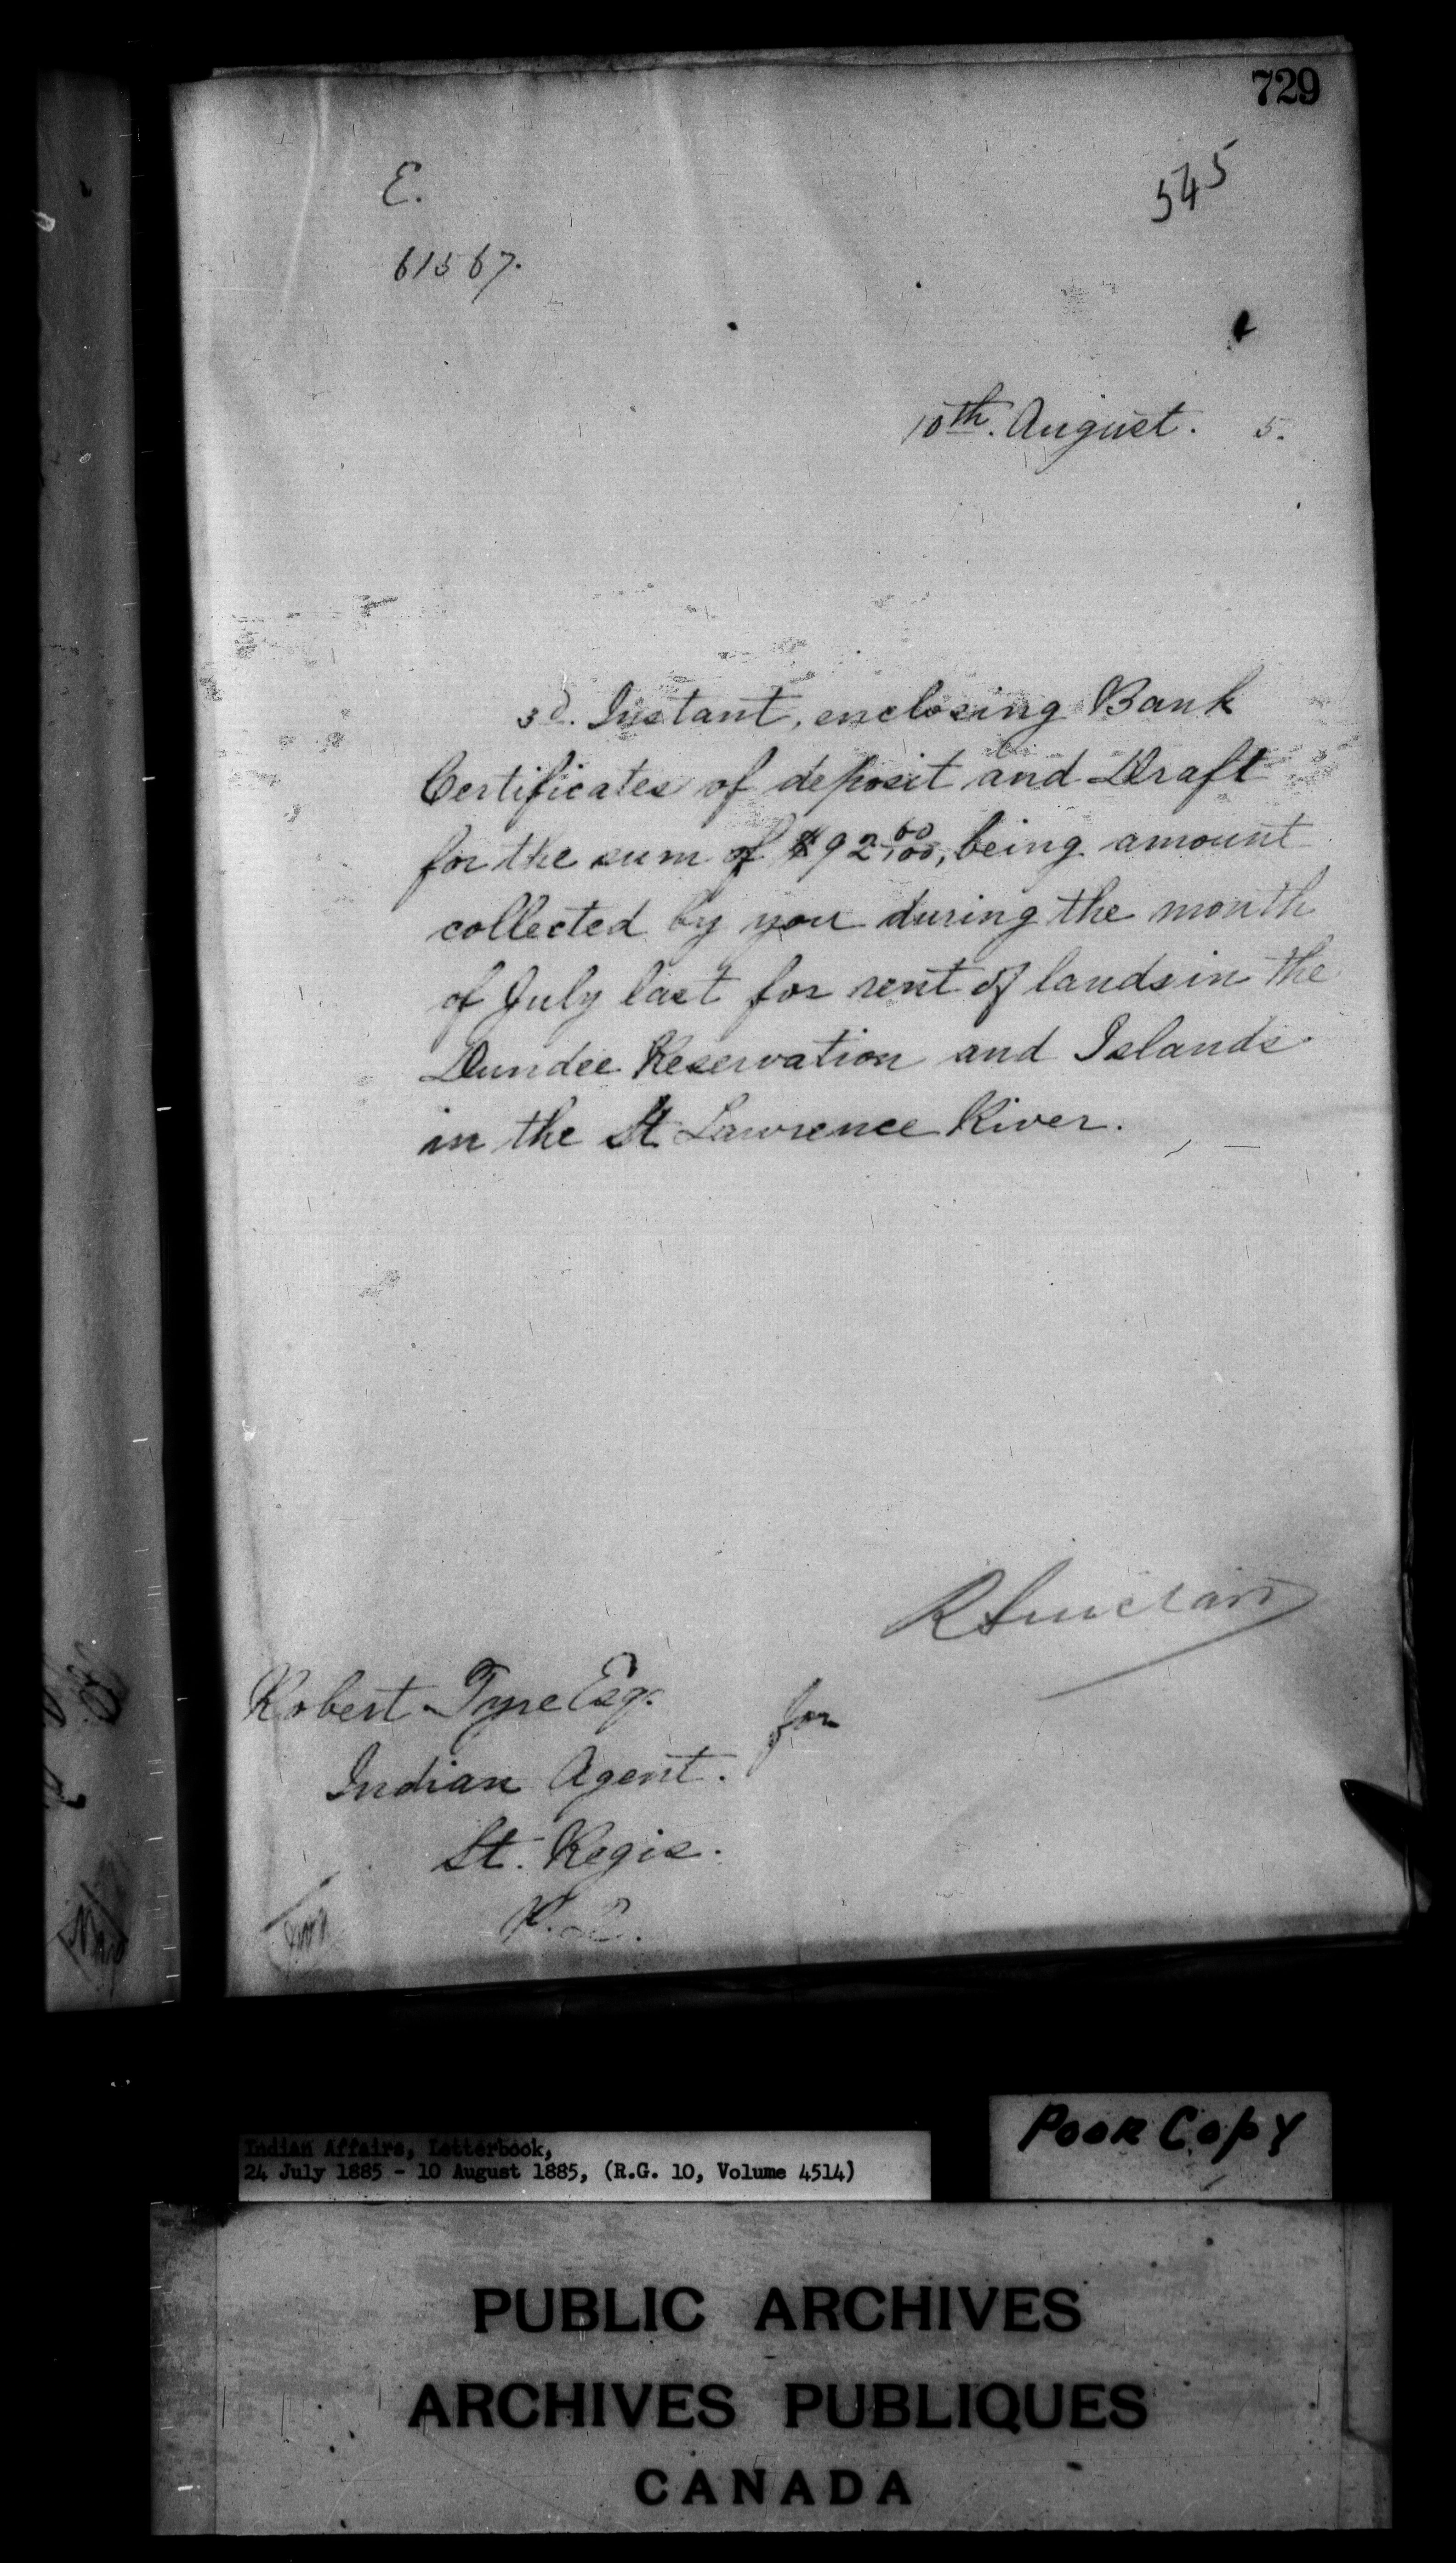 729
545
E.
61567.
10th. August. 5.
3d. Instant, enclosing Bank
Certificates of deposit and Draft
for the sum of $92 60/100, being amount
collected by you during the month
of July last for rent of lands in the
Dundee Reservation and Islands
in the St Lawrence River.
R Sinclair
for
Robert Tyre Esq.
Indian Agent.
St. Regis.
Indian Affairs, Letterbook,
24 July 1885 - 10 August 1885, (R.G. 10, Volume 4514)
Poor Copy
PUBLIC ARCHIVES
ARCHIVES PUBLIQUES
CANADA